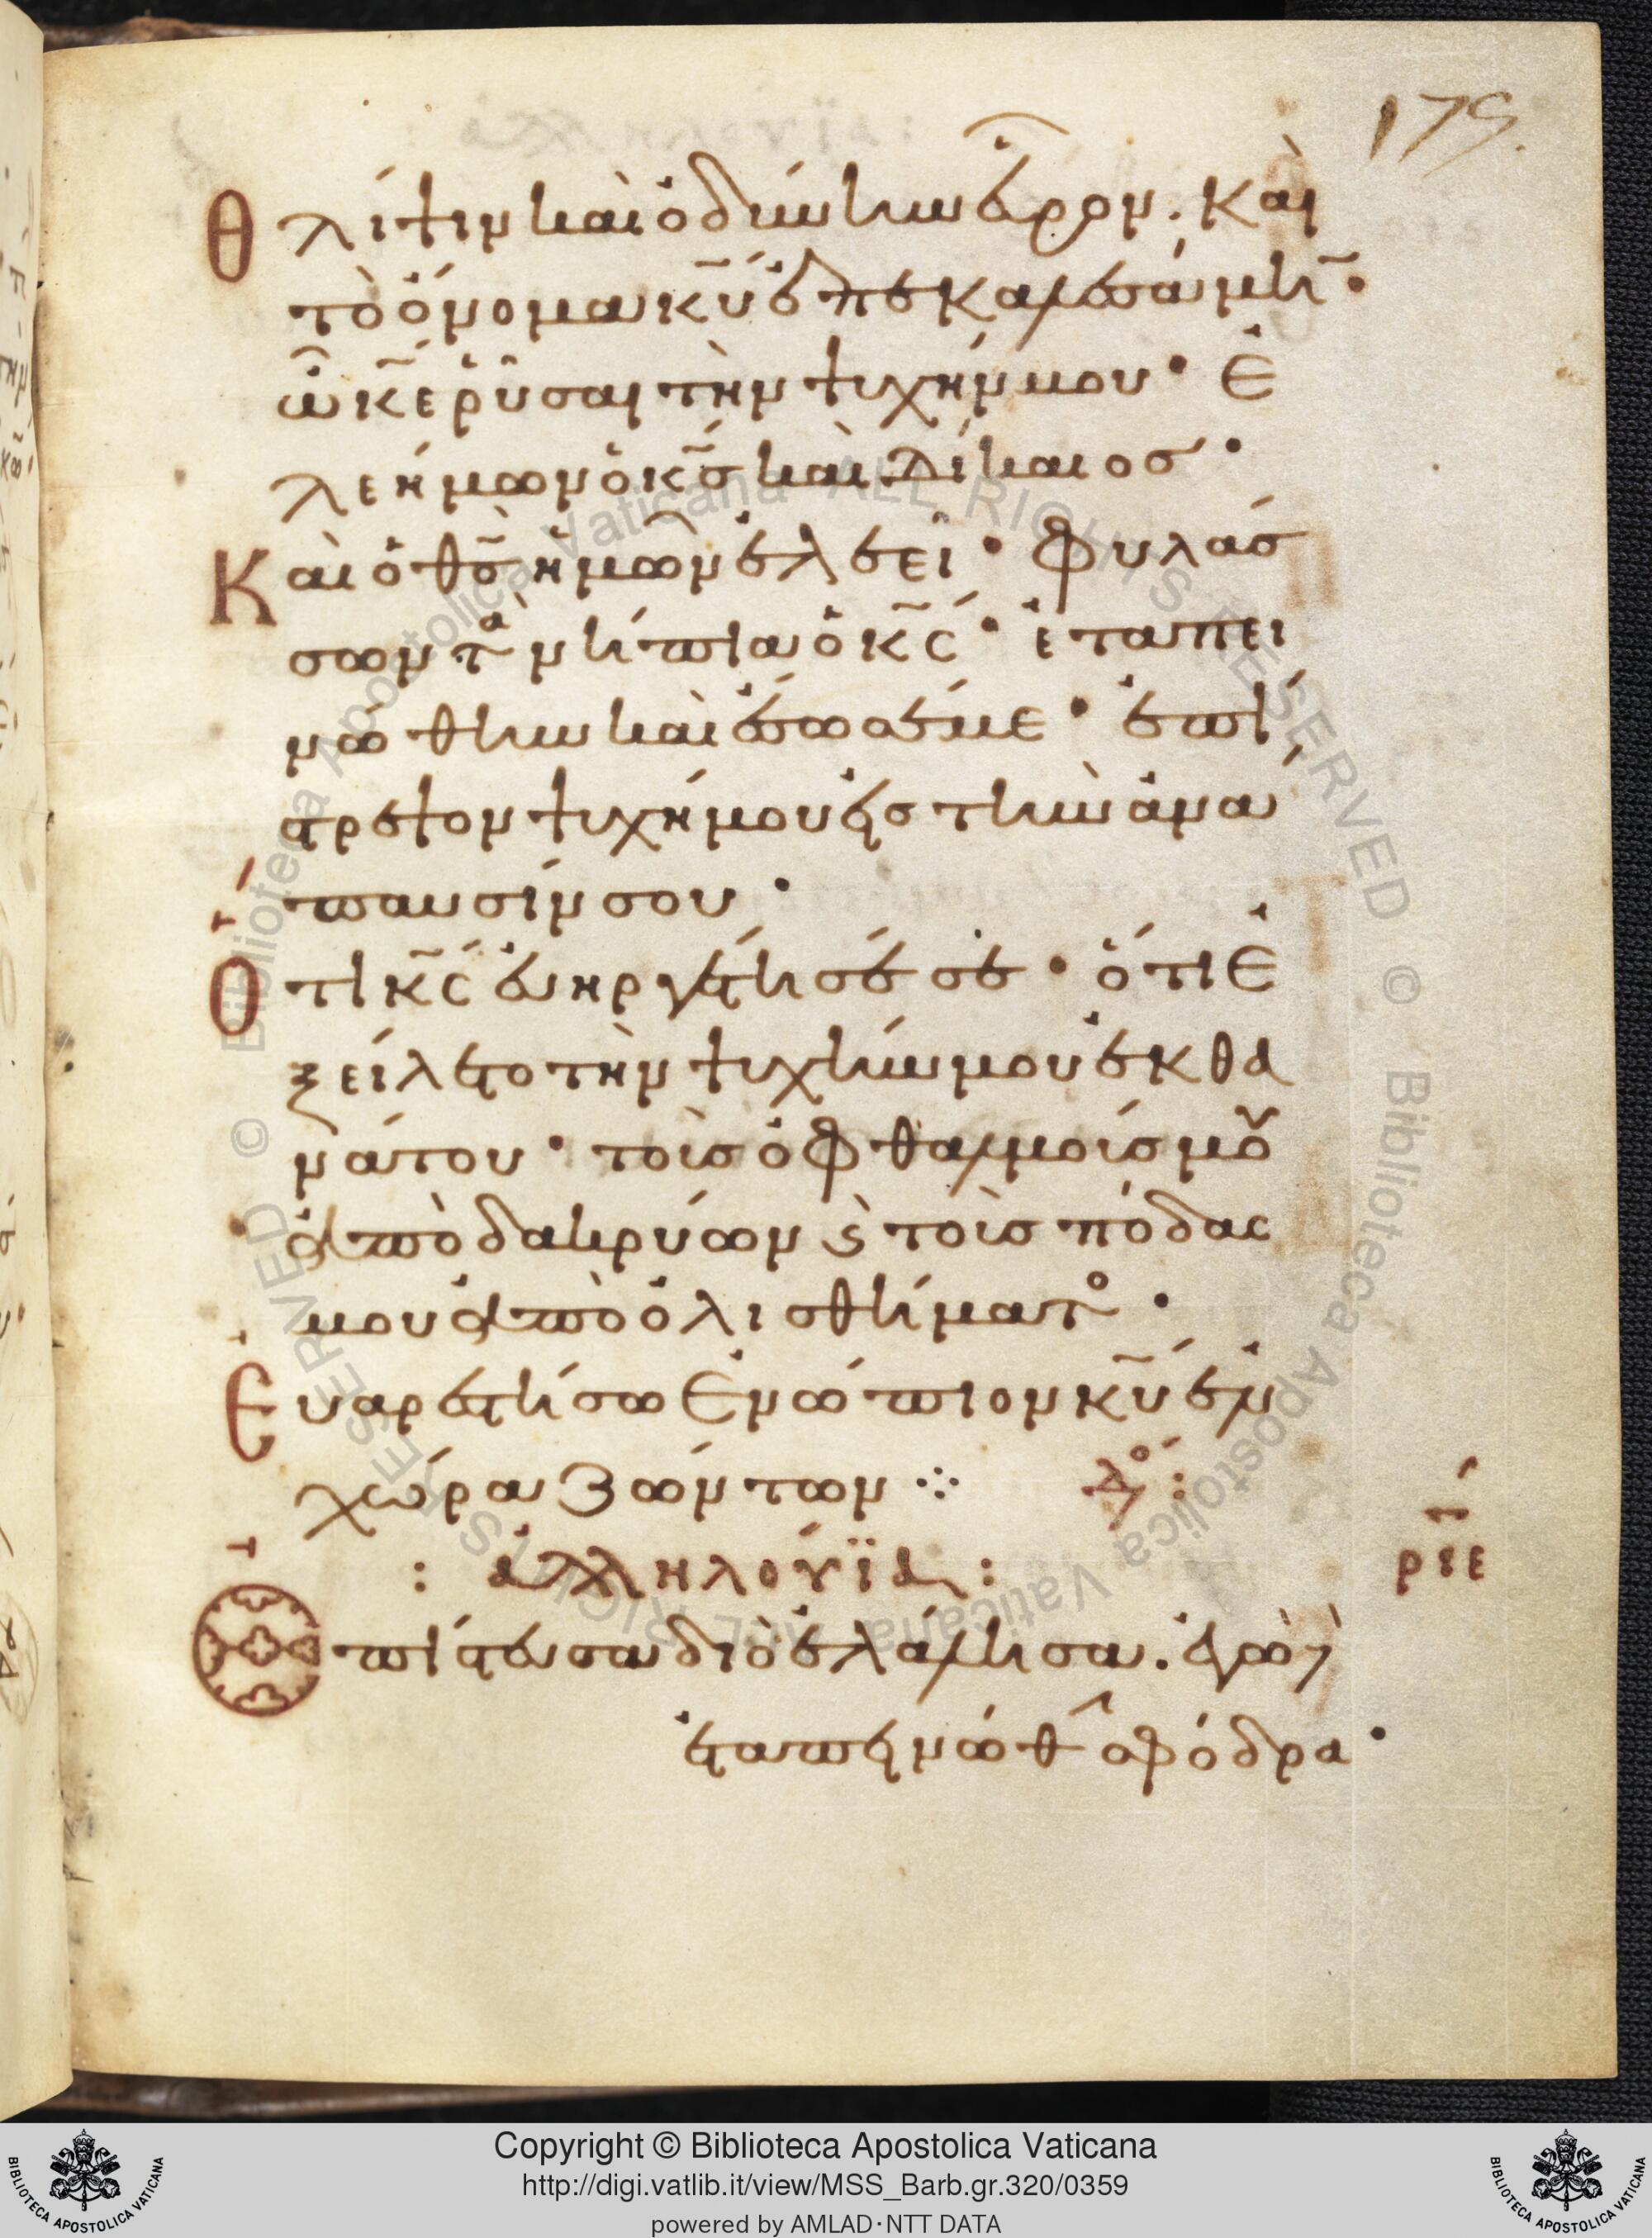 175.
Θλίψιν καὶ ὀδύνην εὗρον. Καὶ
τὸ ὄνομα κ̅υ̅ ἐπεκαλεσάμην·
ὦ κ̅ε̅ ῥῦσαι τὴν ψυχήν μου· Ἐ
λεήμων ὁ κ̅ς̅ καὶ δίκαιος·
Καὶ ὁ θ̅ς̅ ἡμῶν ἐλεεῖ· Φυλάσ
σων τὰ νήπια ὁ κ̅ς̅· ἐταπει
νώθην καὶ ἔσωσέ με· ἐπί
στρεψον ψυχή μου εἰς τὴν ἀνά
παυσίν σου·
Ὅτι κ̅ς̅ εὐηργέτησέ σε· ὅτι Ἐ
ξείλετο τὴν ψυχήν μου ἐκ θα
νάτου· τοὺς ὀφθαλμούς μου
ἀπὸ δακρύων ϛ τοὺς πόδας
μου ἀπὸ ὀλισθήματο·
Εὐαρεστήσω Ἐνώπιον κ̅υ̅ ἐν
χώρα ζώντων ⁘ δο:
: ἀλληλούϊα :
ριε
Ἐπίστευσα διὸ ἐλάλησα. ἐγὼ δὲ
ἐταπεινώθην σφόδρα·
Biblioteca Apostolica Vaticana ALL RIGHTS RESERVED ©
Copyright © Biblioteca Apostolica Vaticana
http://digi.vatlib.it/view/MSS_Barb.gr.320/0359
powered by AMLAD·NTT DATA
BIBLIOTECA APOSTOLICA VATICANA
BIBLIOTECA APOSTOLICA VATICANA